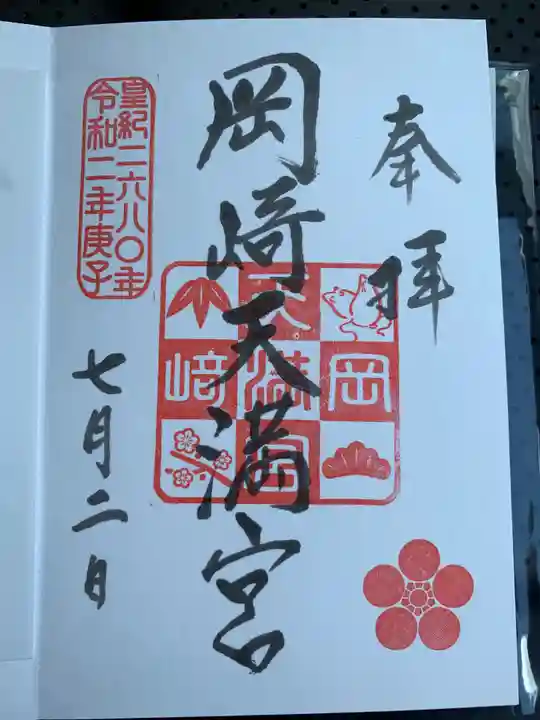 奉拝
岡崎天満宮
岡
天満宮
﨑
皇紀二六八〇年
令和二年庚子
七月二日